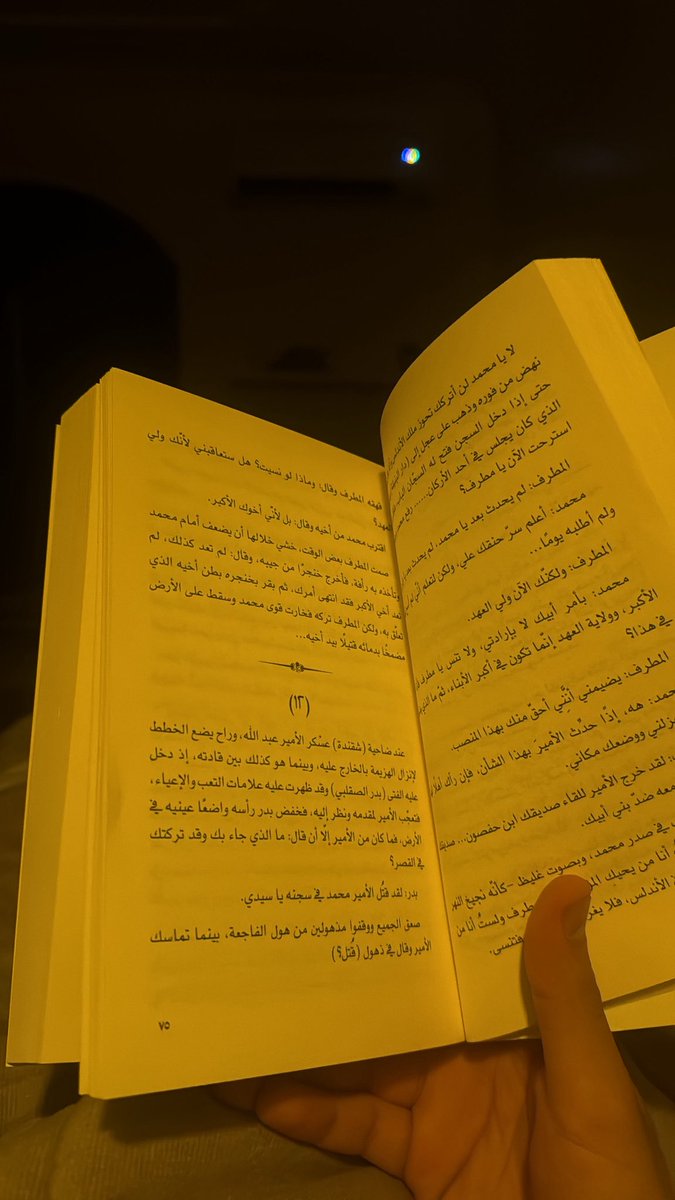 لا يا محمد لن أتركك تحوز ملك الأندلس
نهض من فوره وذهب على عجل إلى (دار
حتى إذا دخل السجن فتح له السجّان
الذي كان يجلس في أحد الأركان...... رفع محمد
استرحت الآن يا مطرف؟
المطرف: لم يحدث بعد يا محمد، لم يحدث بعد
محمد: أعلم سرّ حنقك علي، ولكن لتعلم أنّي
ولم أطلبه يومًا...
المطرف: ولكنّك الآن ولي العهد.
محمد: بأمر أبيك لا بإرادتي، ولا تنس يا مطرف
الأكبر، وولاية العهد إنّما تكون في أكبر الأبناء، ثمّ ما
في هذا؟
المطرف: يضيمني أنّني أحقّ منك بهذا المنصب.
محمد: هه، إذًا حدِّث الأميرَ بهذا الشأن، فإن رآك أهلًا
ووضعك مكاني.
لقد خرج الأمير للقاء صديقك ابن حفصون... صديقك
معه ضدّ بني أبيك.
في صدر محمد، وبصوت غليظ -كأنّه نجيخ النهر
أنا من يحيك
مطرف ولستُ أنا من
الأندلس، فلا
فتنسى.
قهقه المطرف وقال: وماذا لو نسيت؟ هل ستعاقبني لأنّك ولي
العهد؟
اقترب محمد من أخيه وقال: بل لأنّي أخوك الأكبر.
صمت المطرف بعض الوقت، خشي خلالها أن يضعف أمام محمد
وتأخذه به رأفة، فأخرج خنجرًا من جيبه، وقال: لم تعد كذلك، لم
تعد أخي الأكبر فقد انتهى أمرك، ثم بقر بخنجره بطن أخيه الذي
تعلّق به، ولكن المطرف تركه فخارت قوى محمد وسقط على الأرض
مضمخًا بدمائه قتيلًا بيد أخيه...
(١٢)
عند ضاحية (شقندة) عسكر الأمير عبد الله، وراح يضع الخطط
لإنزال الهزيمة بالخارج عليه، وبينما هو كذلك بين قادته، إذ دخل
عليه الفتى (بدر الصقلبي) وقد ظهرت عليه علامات التعب والإعياء،
فتعجّب الأمير لمقدمه ونظر إليه، فخفض بدر رأسه واضعًا عينيه في
الأرض، فما كان من الأمير إلّا أن قال: ما الذي جاء بك وقد تركتك
في القصر؟
بدر: لقد قُتل الأمير محمد في سجنه يا سيدي.
صعق الجميع ووقفوا مذهولين من هول الفاجعة، بينما تماسك
الأمير وقال في ذهول (قُتل؟)
٧٥